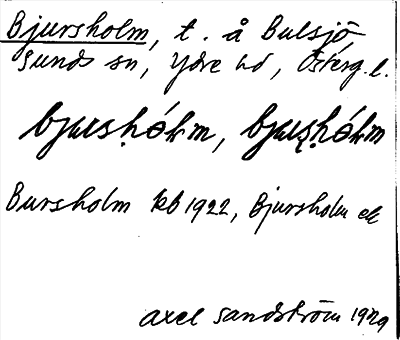 Bjursholm, t. å Bulsjö
Sunds sn, Ydre hd, Österg. l.
bjursholm, bjursholm
Bursholm kb 1922, Bjursholm ek
Axel Sandström 1929